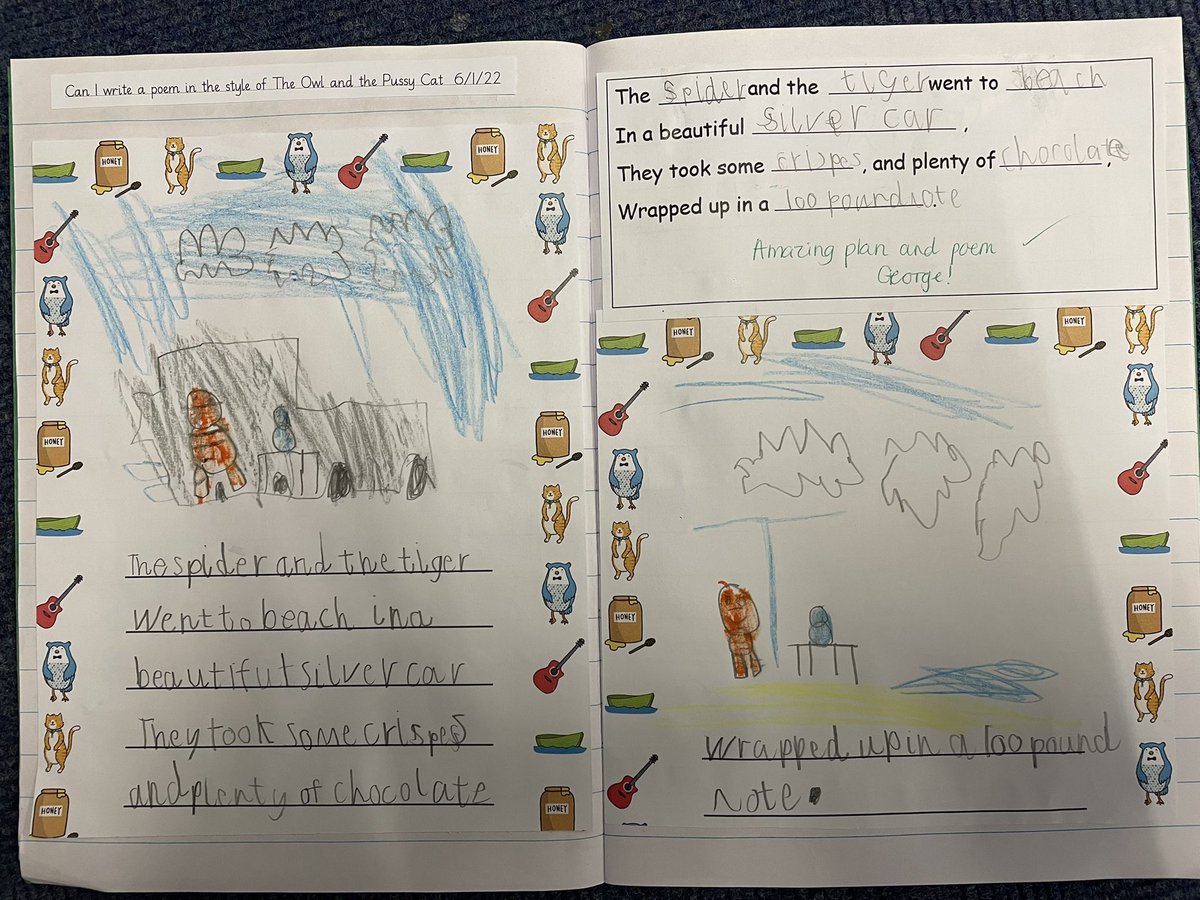 Can I write a poem in the style of The Owl and the Pussy Cat 6/1/22
HONEY
HONEY
HONEY
HONEY
HONEY
HONEY
The spider and the tiger
Went to beach in a
beautifut silver car
They took some crispes
and plenty of chocolate
The spider and the tiger went to beach
In a beautiful silver car,
They took some crispes, and plenty of chocolate,
Wrapped up in a 100 pound note
Amazing plan and poem
George!
HONEY
HONEY
HONEY
HONEY
wrapped up in a 100 pound
note.